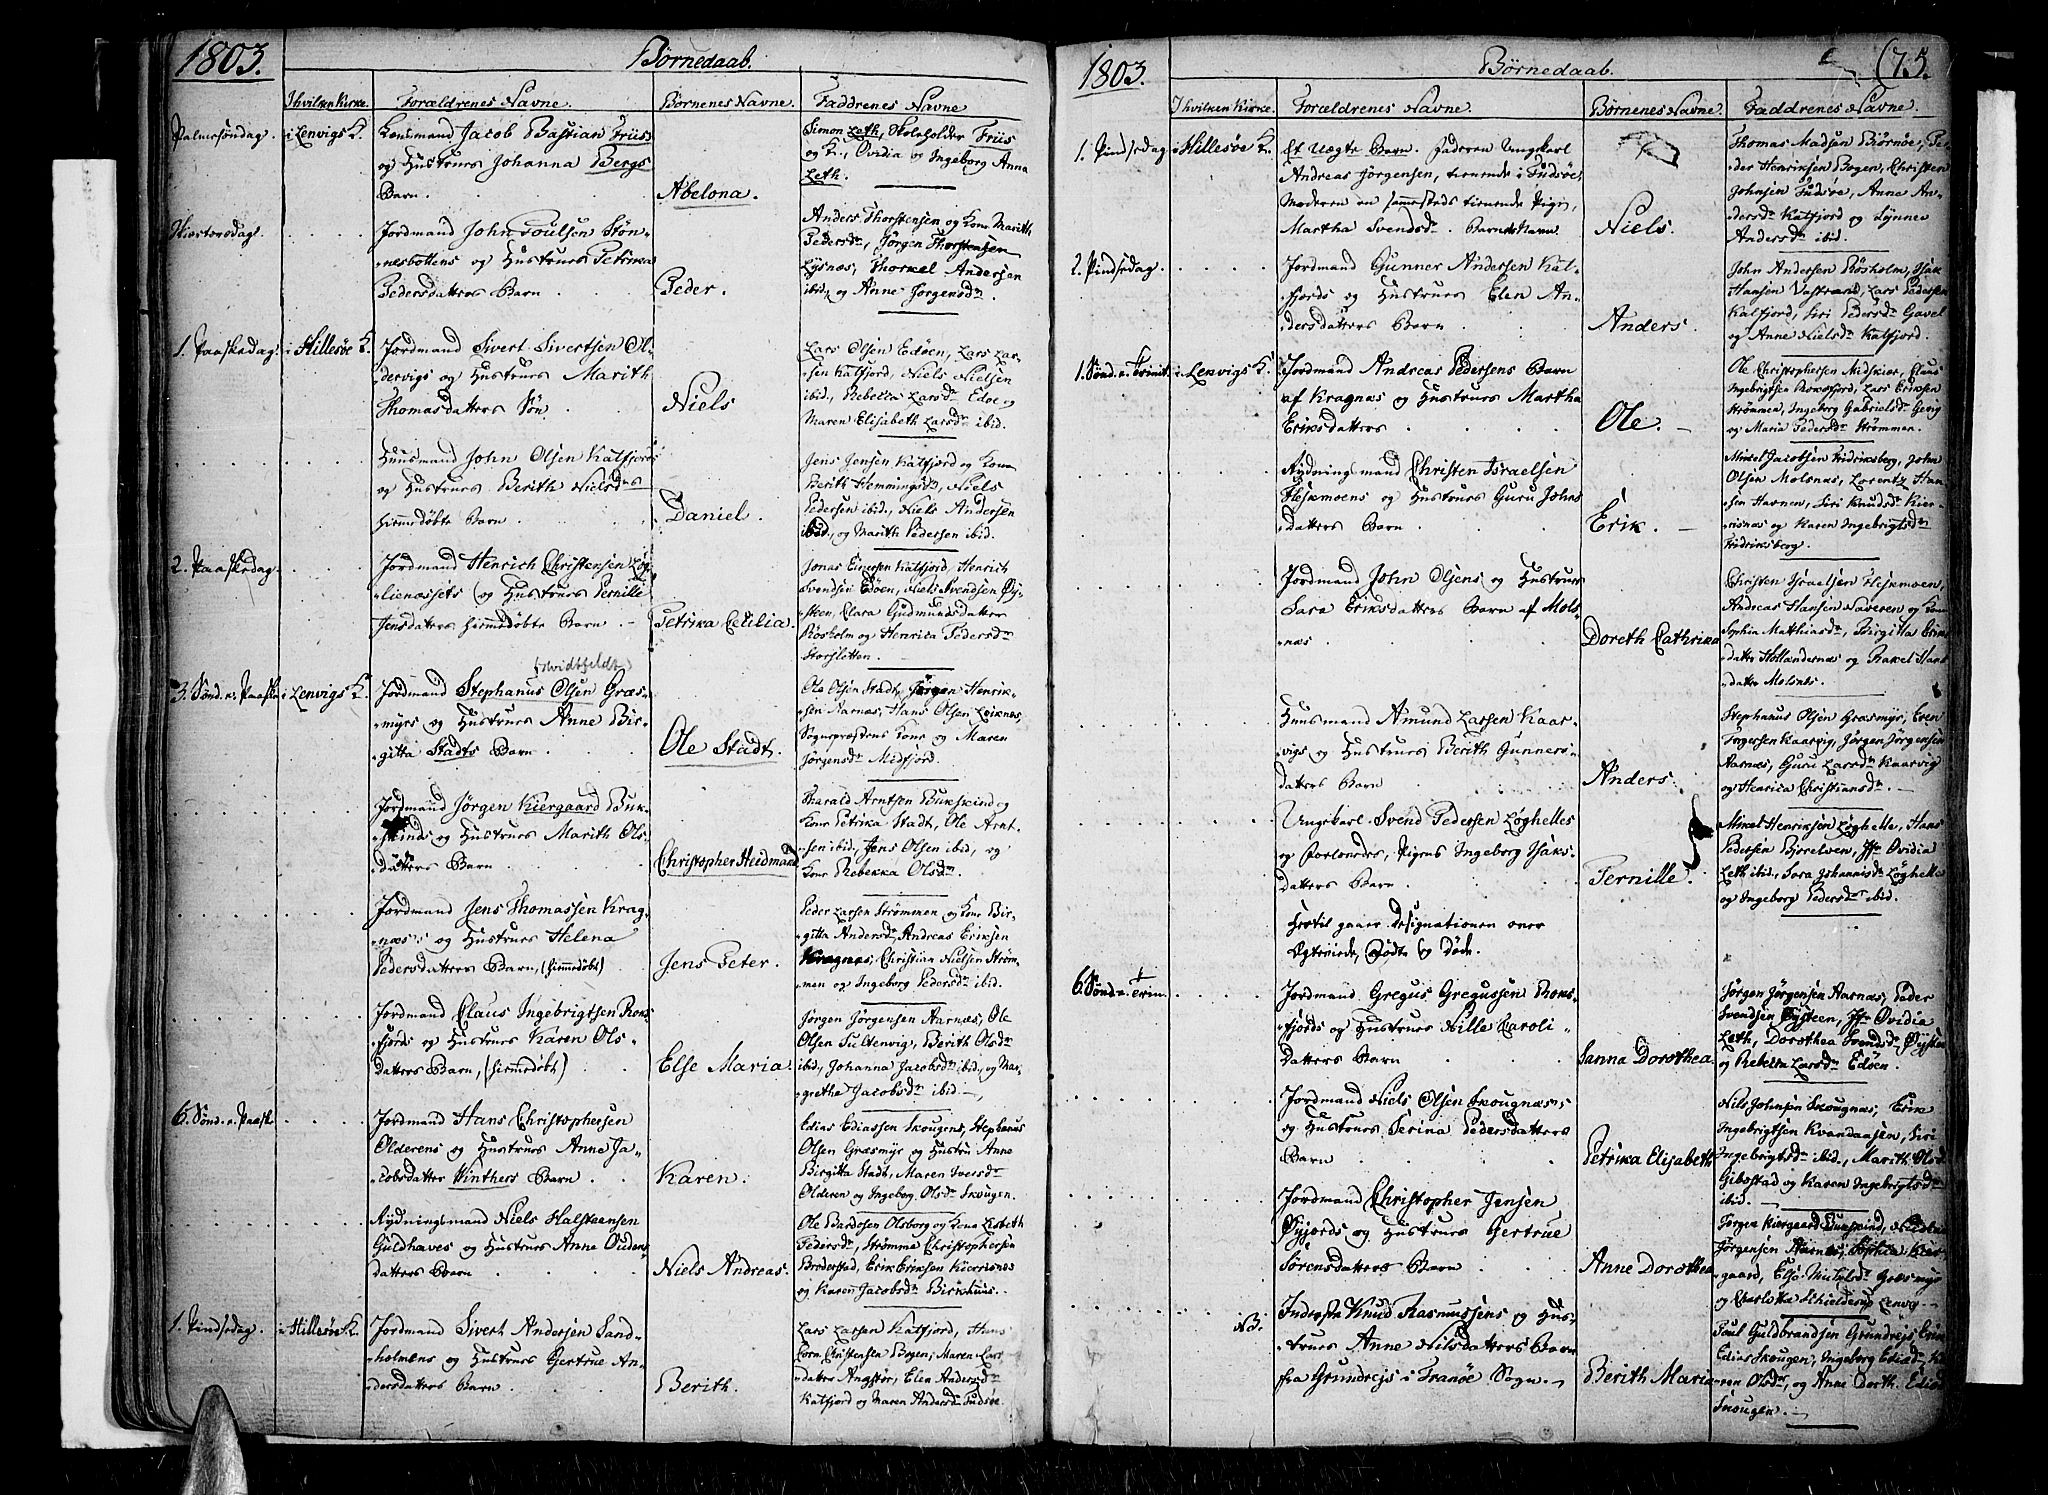 1803.
Børnedaab.
Ihvilken Kirke.
Forældrenes Navne.
Børnenes Navne.
Faddrenes Navne
Palmesøndag.
i Lenvigs K.
Konsmand Jacob Bastian Friis
og Hustrues Johanna Bergs
Barn.
Abelona.
Simon Leth, Skoleholder Friis
og K., Ovidia og Ingeborg Anna
Leth.
Skiertorsdag.
Jordmand John Poulsen Støn-
næsbottens og Hustrues Petrika
Pedersdatters Barn
Peder.
Anders Thorstensen og Kone Marith
Pedersdr, Jørgen Thorstensen
Lysnæs, Thorkel Andersen
ibid, og Anne Jørgensdr
1. Paaskedag.
i Hillesøe K.
Jordmand Sivert Sivertsen Ol-
dervigs og Hustrues Marith
Thomasdatters Søn
Niels
Lars Olsen Edøen, Lars Lar-
sen Katfjord, Niels Nielsen
ibid, Rebekka Larsdr Edøe og
Maren Elisabeth Larsdr ibid.
Huusmand John Olsen Katfjords
og Hustrues Berith Nielsdrs
hiemmedøbte Barn
Daniel.
Jens Jensen Katfjord og Kone
Berith Hemmingsdr, Niels
Pedersen ibid, Niels Andersen
ibid, og Marith Pedersen ibid.
2. Paaskedag.
Jordmand Henrich Christensen Løg-
lienæssets og Hustrues Pernille
Jensdatters hiemmedøbte Barn
Petrika Cecilia.
Jonas Einersen Katfjord, Henrich
Svendsen Edøen, Niels Svendsen Øy-
steen, Clara Gudmundsdatter
Røsholm og Henrica Pedersdr
Storsletten.
3. Sønd. n. Paaske
i Lenvigs K.
(Hvidtfeldt)
Jordmand Stephanus Olsen Græs-
myrs og Hustrues Anne Bir-
gitta Stadts Barn
Ole Stadt.
Ole Olsen Stadt, Jørgen Henrik-
sen Aarnæs, Hans Olsen Leiknes,
Sognepræstens Kone og Maren
Jørgensdr Midfjord.
Jordmand Jørgen Kiergaard Buk-
skinds og Hustrues Marith Ols-
datters Barn
Christopher Heidmand
Harald Arntsen Bukskind og
Kone Petrika Stadt, Ole Arnt-
sen ibid, Jens Olsen ibid, og
Kone Rebekka Olsdr
Jordmand Jens Thomassen Krag-
næs og Hustrues Helena
Pedersdatters Barn, (hiemmedøbt)
Jens Peter.
Peder Larsen Strømmen og Kone Bir-
gitta Andersdr, Andreas Eriksen
Kragnæs, Christian Nielsen Strøm-
men og Ingeborg Pedersdr ibid.
Jordmand Claus Ingebrigtsen Roks-
fjords og Hustrues Karen Ols-
datters Barn, (hiemmedøbt)
Else Maria.
Jørgen Jørgensen Aarnæs, Ole
Olsen Sultenvig, Berith Olsdr
ibid, Johanna Jacobsdr ibid, og Mar-
grethe Jacobsdr ibid.
6. Sønd. n. Paaske
Jordmand Hans Christophersen
Olderens og Hustrues Anne Ja-
cobsdatter Vinthers Barn
Karen.
Edias Ediassen Skougens, Stephanus
Olsen Græsmyr og Hustru Anne
Birgitta Stadt, Maren Iversdr
Olderen og Ingeborg Olsdr Skougen.
Rydningsmand Niels Halsteensen
Guldhaves og Hustrues Anne Ouden-
datters Barn
Niels Andreas.
Ole Bardosen Olsborg og Kone Lisbeth
Pedersdr, Strømme Christophersen
Brederstad, Erik Eriksen Kierrisnæs
og Karen Jacobsdr Birkhuus.
1. Pindsedag.
i Hillesøe K.
Jordmand Sivert Andersen Sand-
holmens og Hustrues Gertrue An-
dersdatters Barn
Berith.
Lars Larsen Katfjord, Hans
Christensen Bogen, Maren Lars-
datter Angstøe, Elen Andersdr
Katfjord og Maren Andersdr Tudsøe.
1803.
Børnedaab.
(75.
Ihvilken Kirke.
Forældrenes Navne.
Børnenes Navne
Faddrenes Navne.
1. Pindsedag
i Hillesøe K.
Et Uægte Barn. Faderen Ungkarl
Andreas Jørgensen, tienende i Tudsøe,
Moderen en sammesteds tienende Pige,
Martha Svendsdr. Barnets Navn
Niels.
Thomas Madsen Biørnøe, Pe-
der Henriksen Bogen, Christen
Johnsen Tudsøe, Anne An-
dersdr Katfjord og Lynnea
Andersdr ibid.
2. Pindsedag.
Jordmand Gunner Andersen Kat-
fjords og Hustrues Elen An-
dersdatters Barn
Anders.
John Andersen Røsholm, Isak
Hansen Vasstrand, Lars Pedersen
Katfjord, Siri Pedersdr Gavel
og Anne Nielsdr Katfjord.
1. Sønd. n. Trinit.
i Lenvigs K.
Jordmand Andreas Pedersens Barn
af Kragnæs og Hustrues Martha
Eriksdatters
Ole.
Ole Christophersen Midskiær, Claus
Ingebrigtsen Roksfjord, Lars Eriksen
Strømmen, Ingeborg Gabrielsdr Gevig
og Maria Pedersdr Strømmen.
Rydningsmand Christen Israelsen
Fleskmoens og Hustrues Guru Johns
datters Barn
Erik.
Mikel Jacobsen Fridriksberg, John
Olsen Molsnæs, Lorentz Han-
sen Havnen, Siri Knudsdr Kier-
risnæs og Karen Ingebrigtsdr
Fridriksberg.
Jordmand John Olsens og Hustrues
Sara Eriksdatters Barn af Mols-
næs
Doreth Cathrika
Christen Israelsen Fleskmoen,
Andreas Hansen Naveren og Kone
Sophia Mathiasdr, Birgitta Eriks-
datter Hollændernæs og Rakel Hans-
datter Molsnæs.
Huusmand Amund Larsen Kaar-
vigs og Hustrues Berith Gunners-
datters Barn
Anders.
Stephanus Olsen Græsmyr, Even
Torgersen Kaarvig, Jørgen Jørgensen
Aarnæs, Guru Larsdr Kaarvig
og Henrica Christiansdr.
Ungekarl Svend Pedersen Løghelles
og Forlovedes, Pigens Ingeborg Isaks-
datters Barn
Pernille.
Mikel Henriksen Løghelle, Hans
Pedersen Bjorelven, Jfr. Ovidia
Leth ibid, Sara Johannisdr Løghelle
og Ingeborg Pedersdr ibid.
Hertil gaaer Designationen over
Egteviede, Fødte og Døde.
6. Sønd. n. Trin.
Jordmand Gregus Gregussen Roks-
fjords og Hustrues Nille Caroli-
datters Barn
Sanna Dorothea.
Jørgen Jørgensen Aarnæs, Peder
Svendsen Øysteen, Jfr. Ovidia
Leth, Dorothea Svendsdr Øysteen
og Rebekka Larsdr Edøen.
Jordmand Niels Olsen Skougnæs's
og Hustrues Serina Pedersdatters
Barn
Petrika Elisabeth
Nils Johnsen Skougnæs, Erik
Ingebrigtsen Kvandaasen, Siri
Ingebrigtsdr ibid, Marith Olsdr
Gibostad og Karen Ingebrigtsdr
ibid.
Jordmand Christopher Jensen
Øyjords og Hustrues Gertrue
Sørensdatters Barn
Anne Dorothea
Jørgen Kiergaard Bukskind,
Jørgensen Aarnæs, Sophia Kier-
gaard, Else Mikelsdr Græsmyr
og Charlotta Schielderup Lenvig.
NB.
Inderste Knud Rasmussens og Hus-
trues Anne Nilsdatters Barn
fra Grundrejs i Tranøe Sogn.
Berith Maria
Paul Guldbrandsen Grundrejs,
Edias Skougen, Ingeborg Ediasdr,
Olsdr, og Anne Dorth. Ediasdr
Skougen.